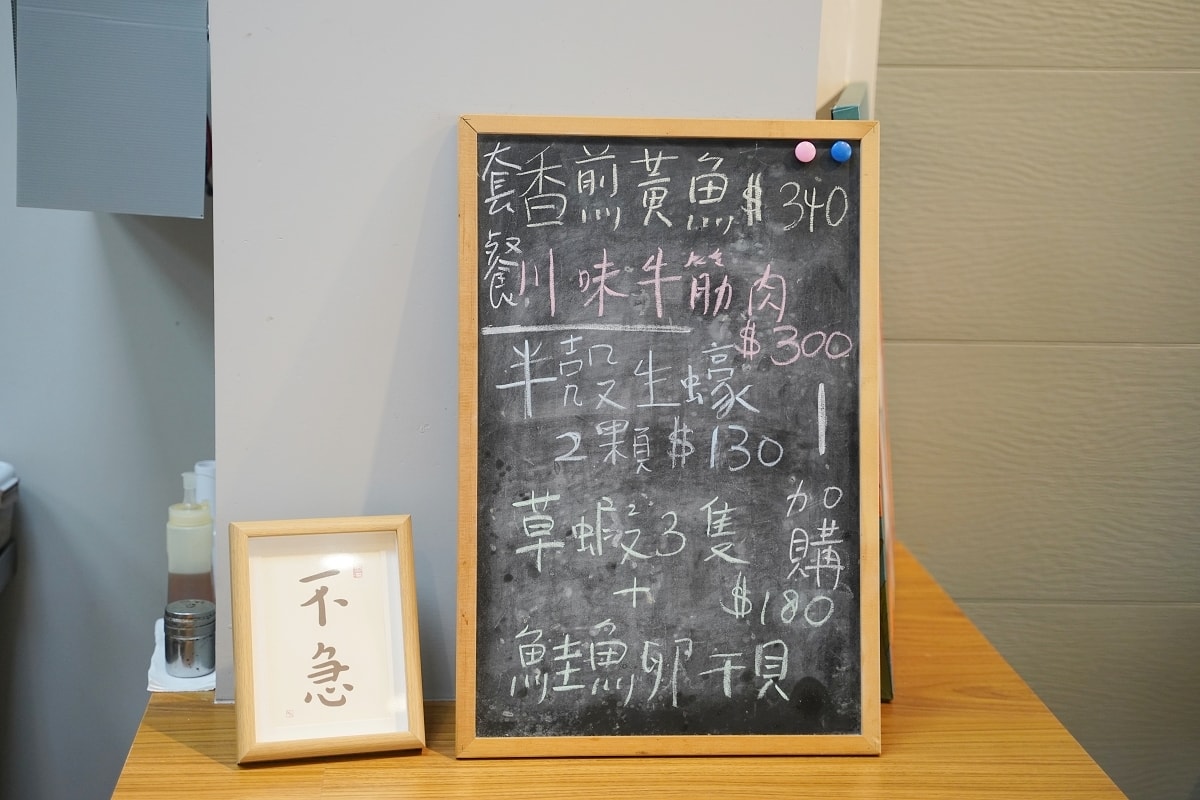 套餐
香煎黃魚 $340
川味牛筋肉
$300
半殼生蠔
2顆 $130
草蝦3隻
+
$180
鮭魚卵干貝
加購
不急